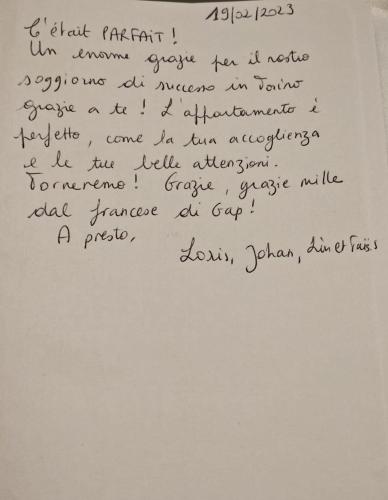 19/02/2023
C'était PARFAIT !
Un enorme grazie per il nostro
soggiorno di successo in Torino
grazie a te ! L'appartamento è
perfetto, come la tua accoglienza
e le tue belle attenzioni.
Torneremo ! Grazie, grazie mille
dal francese di Gap !
A presto,
Loris, Johan, Lin et